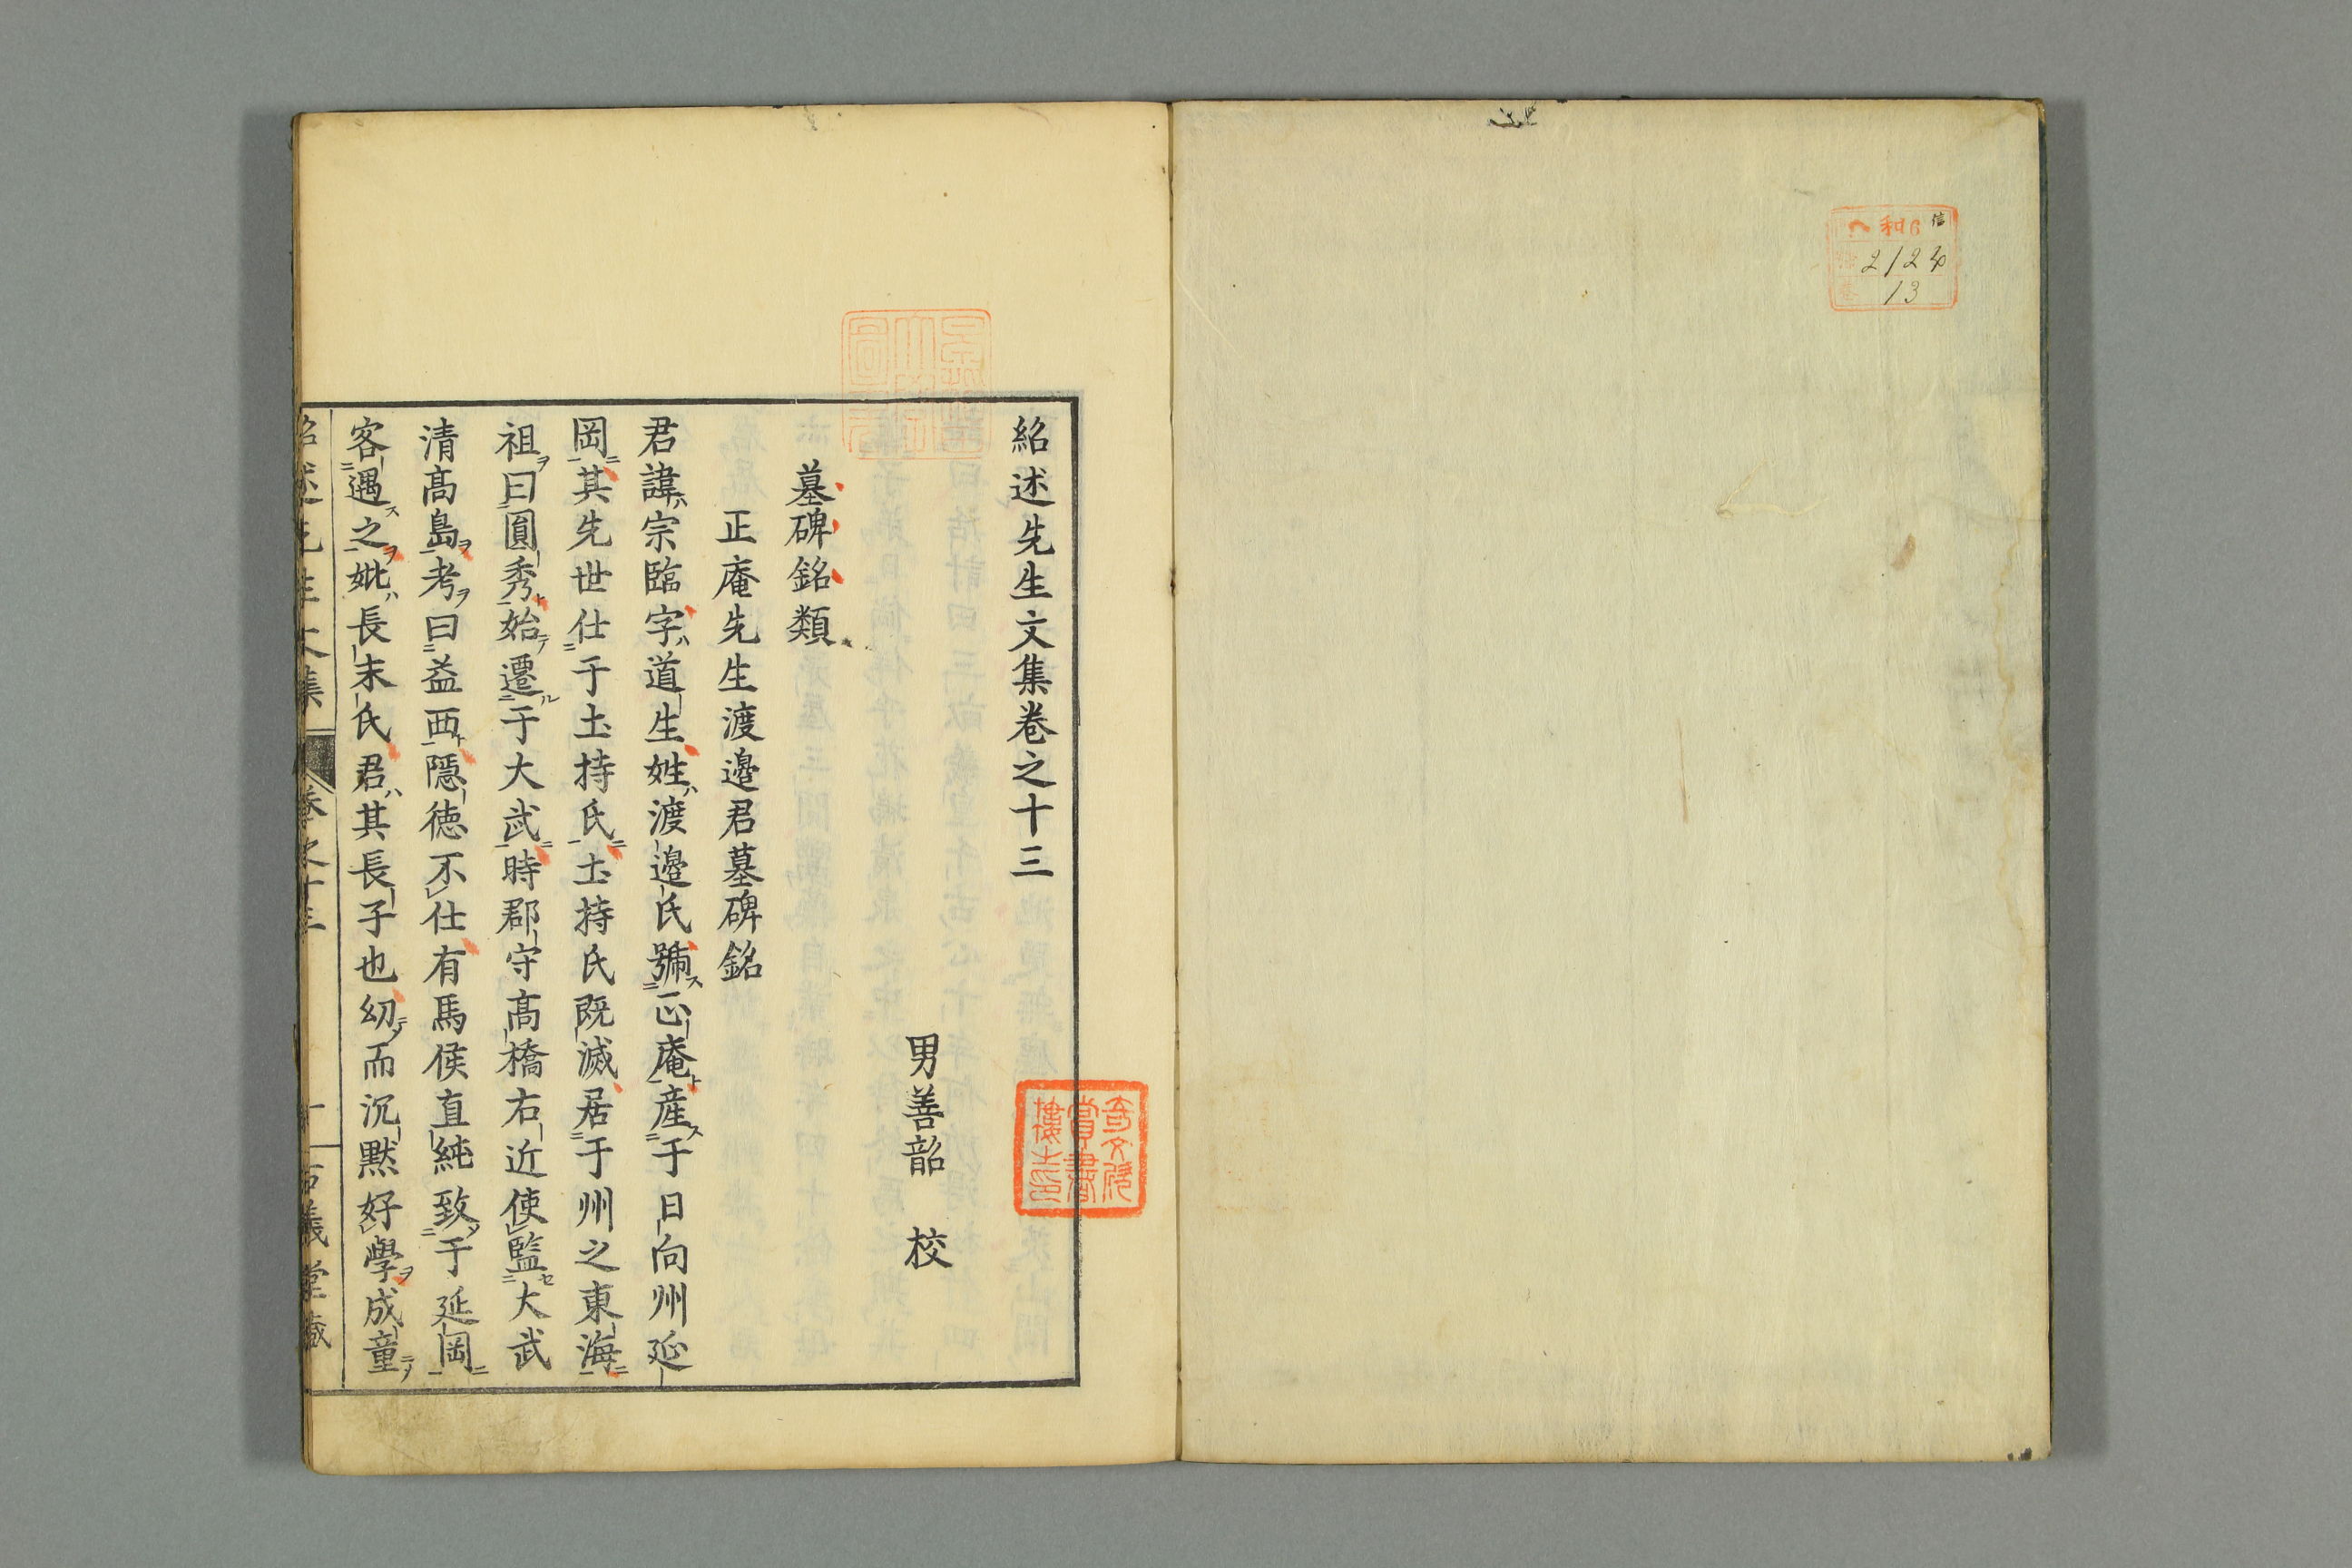 ヘ利6
2124
13
紹述先生文集卷之十三
男善韶 校
墓碑銘類
正庵先生渡邉君墓碑銘
君諱宗臨字道生姓渡邉氏號正庵産于日向州延
岡其先世仕于土持氏土持氏既滅居于州之東海
祖曰圓秀始遷于大武時郡守高橋右近使監大武
清高島考曰益西隱德不仕有馬侯直純致于延岡
客遇之妣長末氏君其長子也幼而沉默好學成童
紹述先生文集 卷之十三 古義堂藏
奇文欣賞書樓之印